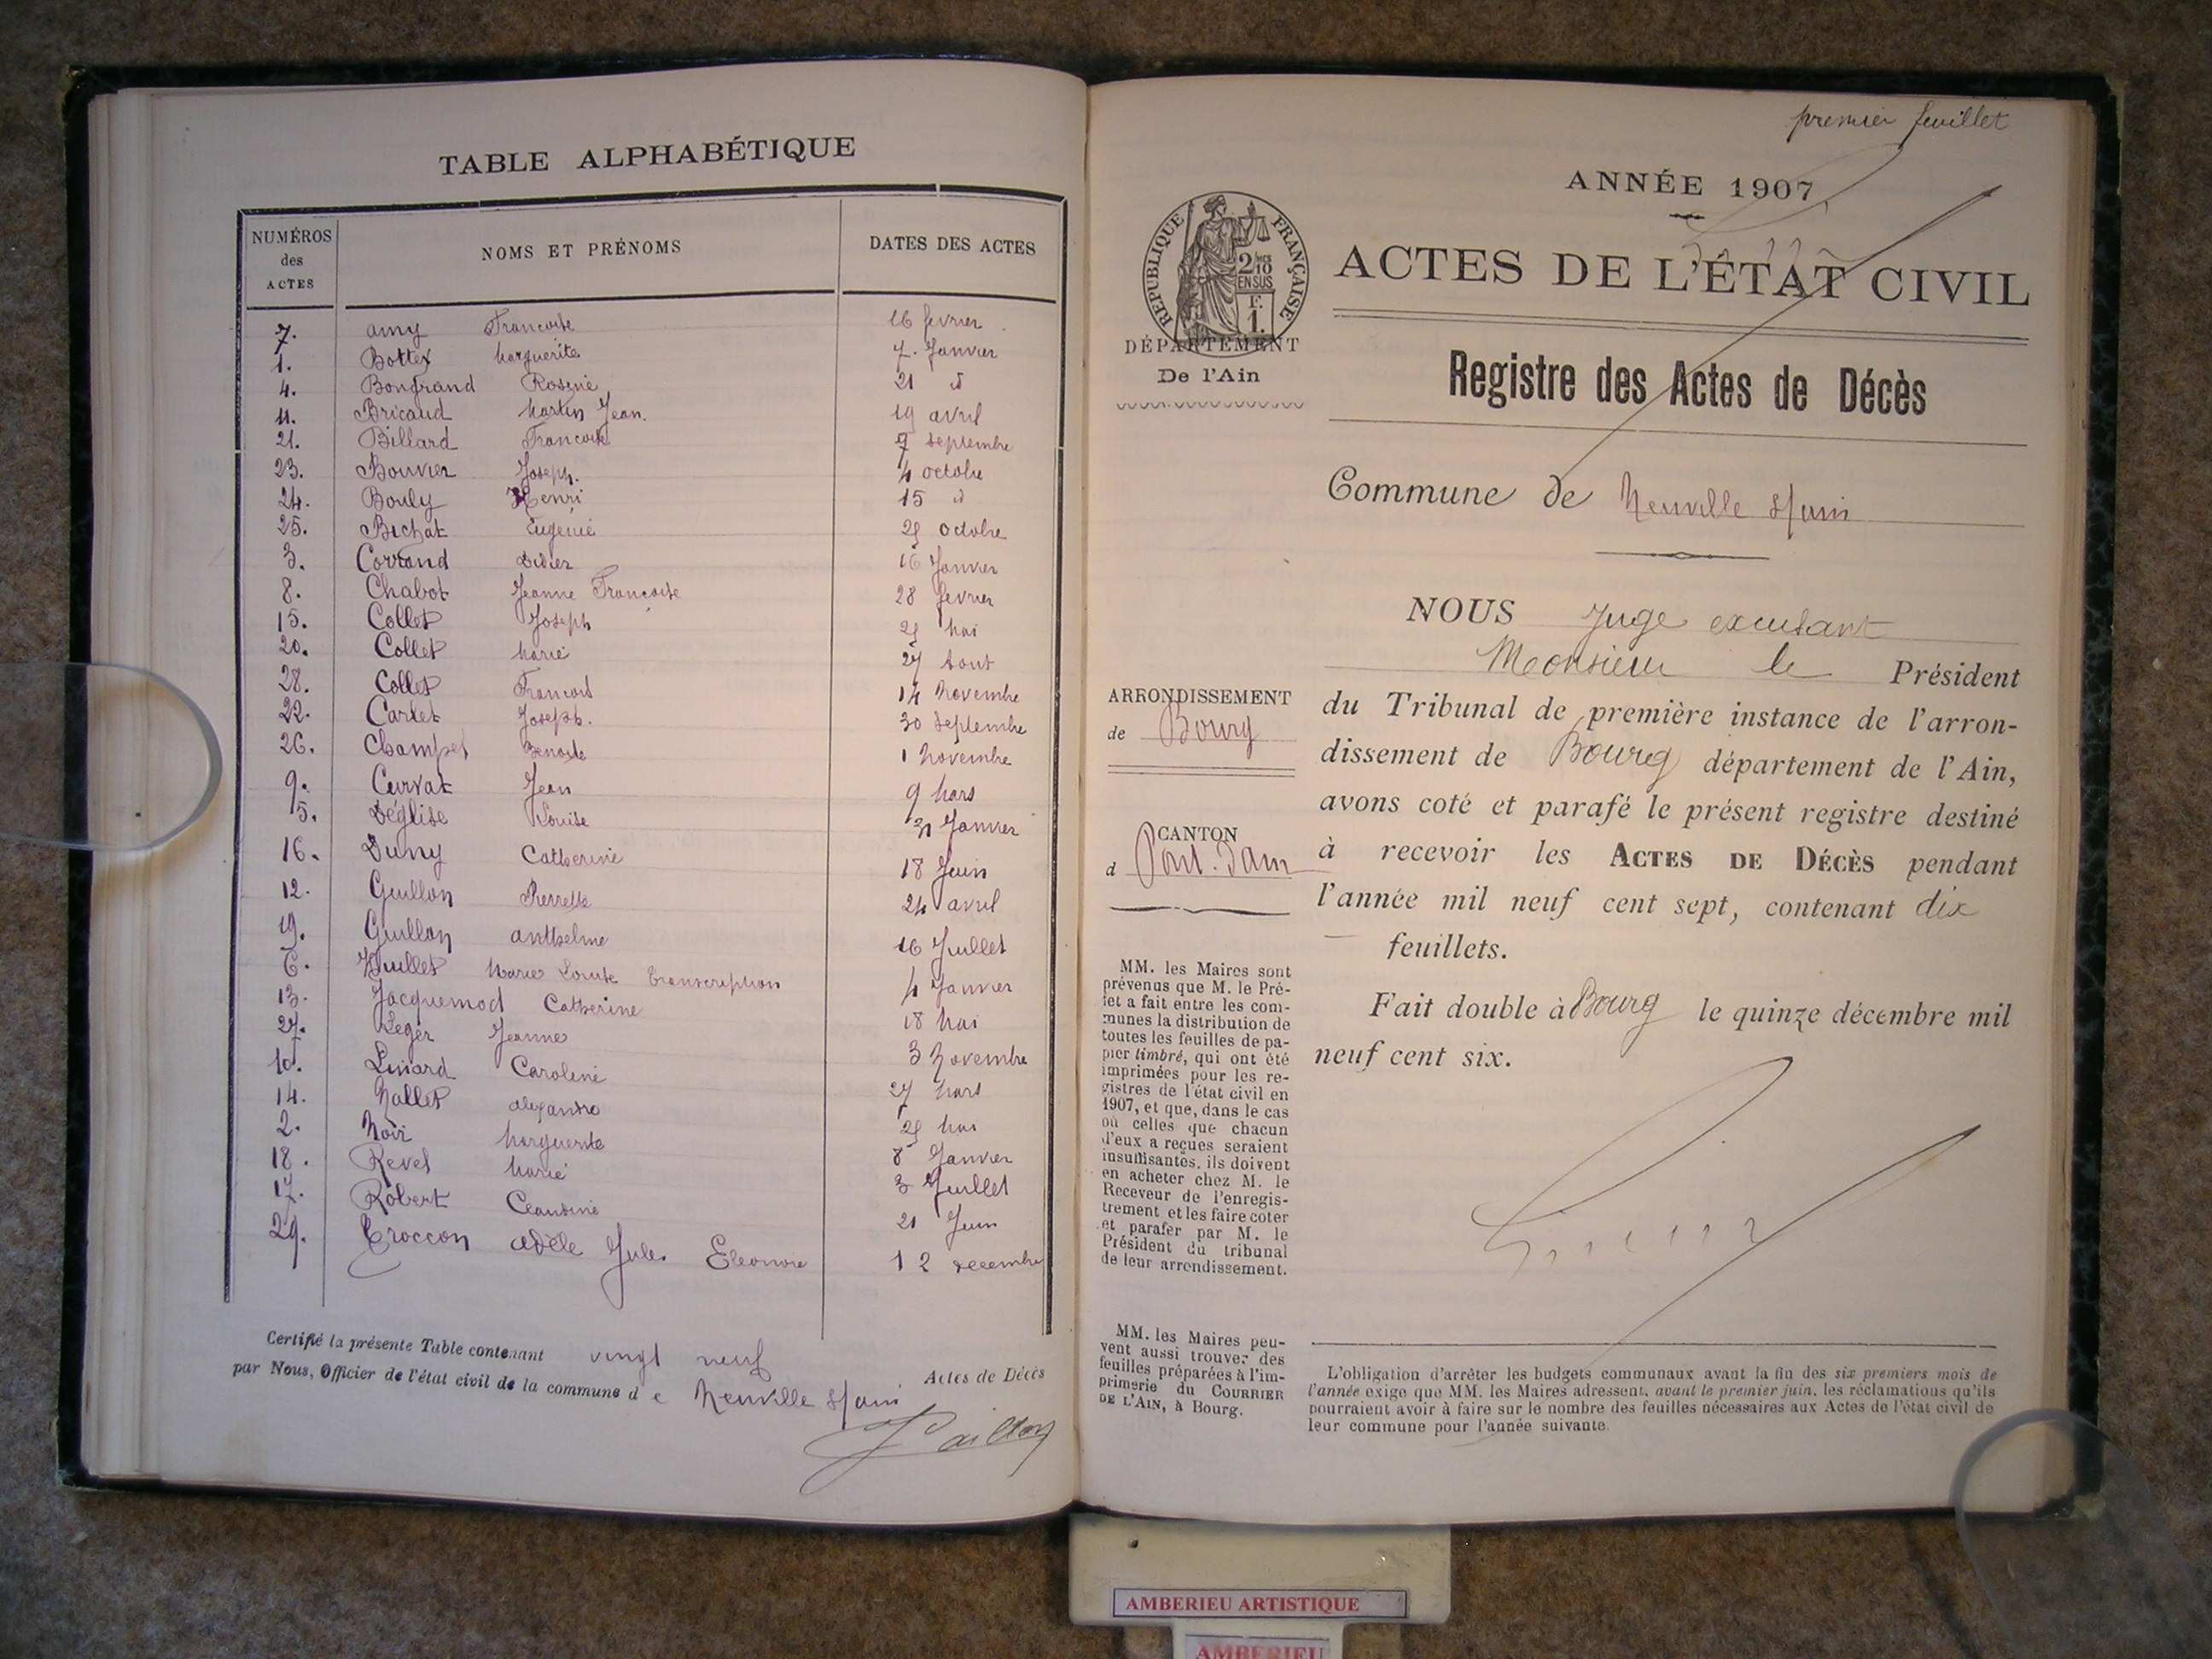 TABLE ALPHABÉTIQUE
NUMÉROS des ACTES NOMS ET PRÉNOMS DATES DES ACTES
7. amy Francoise 16 fevrier
1. Bottex Marguerite 7. Janvier
4. Bongrand Rosine 21 d
11. Bricaud Martin Jean. 19 avril
21. Billard Francoise 7 septembre
23. Bouvier Joseph. 4 octobre
24. Bouly Henri 15 d
25. Bichat Eugénie 25 octobre
3. Corrand Didier 16 Janvier
8. Chabot Jeanne Francoise 28 fevrier
15. Collet Joseph 25 Mai
20. Collet Marie 27 Aout
28. Collet Francois 14 Novembre
22. Carlet Joseph. 30 septembre
26. Champel Benoite 1 Novembre
9. Curvat Jean 9 Mars
5. Déglise Louise 31 Janvier
16. Duny Catherine 18 Juin
12. Guillon Pierrette 24 avril
19. Guillon anthelme 16 Juillet
6. Huillet Marie Louise transcription 4 Janvier
13. Jacquemod Catherine 18 Mai
27. Leger Jeanne 3 Novembre
10. Liniard Caroline 27 Mars
14. Nallet alexandre 25 Mai
2. Noir Marguerite 8 Janvier
18. Revel Marie 3 Juillet
17. Robert Claudine 21 Juin
29. Troccon adèle Jules Eleonore 12 decembre
Certifié la présente Table contenant vingt neuf Actes de Décès
par Nous, Officier de l'état civil de la commune d e Neuville s/ain
premier feuillet
ANNÉE 1907
RÉPUBLIQUE FRANÇAISE
2/10 EN SUS
F. 1.
ACTES DE L'ÉTAT CIVIL
DÉPARTEMENT
De l'Ain
Registre des Actes de Décès
Commune de Neuville s/ain
NOUS Juge excusant
Monsieur le Président
du Tribunal de première instance de l'arron-
dissement de Bourg département de l'Ain,
avons coté et parafé le présent registre destiné
à recevoir les ACTES DE DÉCÈS pendant
l'année mil neuf cent sept, contenant dix
feuillets.
Fait double à Bourg le quinze décembre mil
neuf cent six.
ARRONDISSEMENT
de Bourg
CANTON
d Pont-d'ain
MM. les Maires sont
prévenus que M. le Pré-
fet a fait entre les com-
munes la distribution de
toutes les feuilles de pa-
pier timbré, qui ont été
imprimées pour les re-
gistres de l'état civil en
1907, et que, dans le cas
où celles que chacun
d'eux a reçues seraient
insuffisantes, ils doivent
en acheter chez M. le
Receveur de l'enregis-
trement et les faire coter
et parafer par M. le
Président du tribunal
de leur arrondissement.
MM. les Maires peu-
vent aussi trouver des
feuilles préparées à l'im-
primerie du COURRIER
DE L'AIN, à Bourg.
L'obligation d'arrêter les budgets communaux avant la fin des six premiers mois de
l'année exige que MM. les Maires adressent, avant le premier juin, les réclamations qu'ils
pourraient avoir à faire sur le nombre des feuilles nécessaires aux Actes de l'état civil de
leur commune pour l'année suivante.
AMBERIEU ARTISTIQUE
AMBERIEU